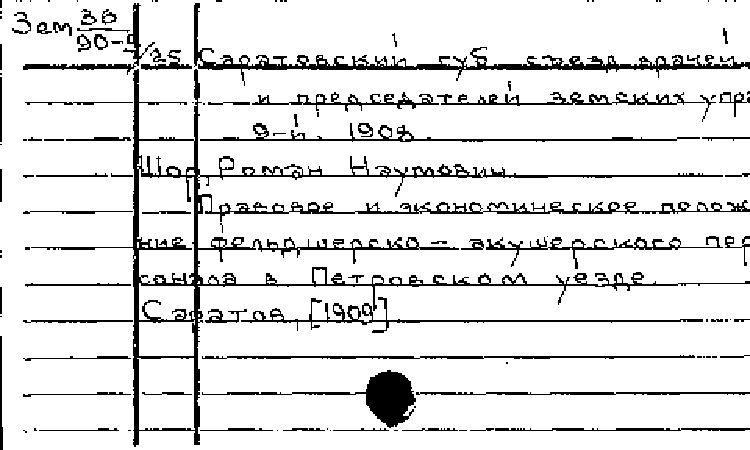 Зем 38
90-5/25 Саратовский губ. съезд врачей
и председателей земских упра
9-й. 1908.
Шор, Роман Наумович.
Правовое и экономическое полож
ние фельдшерско-акушерского пер
сонала в Петровском уезде.
Саратов, [1909]